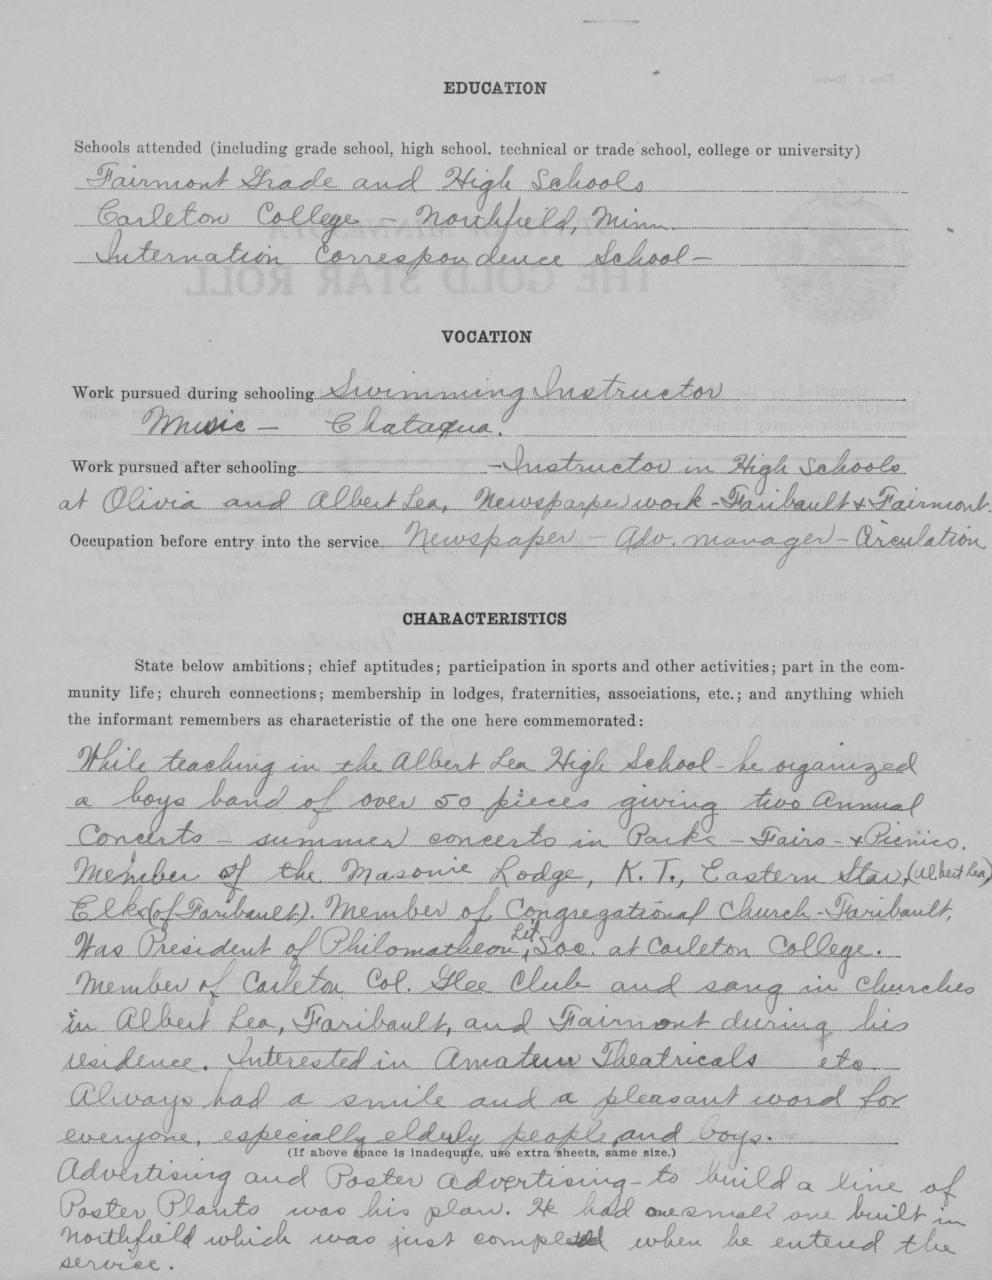 EDUCATION
Schools attended (including grade school, high school, technical or trade school, college or university)
Fairmont Grade and High Schools
Carleton College - Northfield, Minn.
Internation Correspondence School -
THE GOLD STAR ROLL
VOCATION
Work pursued during schooling Swimming Instructor
Music - Chataqua.
Work pursued after schooling - Instructor in High Schools
at Olivia and Albert Lea, Newsparper work - Faribault & Fairmont.
Occupation before entry into the service Newspaper - Adv. manager - Circulation
CHARACTERISTICS
State below ambitions; chief aptitudes; participation in sports and other activities; part in the com-
munity life; church connections; membership in lodges, fraternities, associations, etc.; and anything which
the informant remembers as characteristic of the one here commemorated:
While teaching in the Albert Lea High School - he organized
a boys band of over 50 pieces giving two Annual
Concerts - summer concerts in Parks - Fairs - & Picnics.
Member of the Masonic Lodge, K. T., Eastern Star, (Albert Lea)
Elks (of Faribault). Member of Congregational Church - Faribault,
Was President of Philomathean Lit. Soc. at Carleton College.
Member of Carleton Col. Glee Club and sang in Churches
in Albert Lea, Faribault, and Fairmont during his
residence. Interested in Amateur Theatricals etc.
Always had a smile and a pleasant word for
everyone, especially elderly people, and boys.
(If above space is inadequate, use extra sheets, same size.)
Advertising and Poster Advertising - to build a line of
Poster Plants was his plan. He had one small one built in
Northfield which was just completed when he entered the
service.